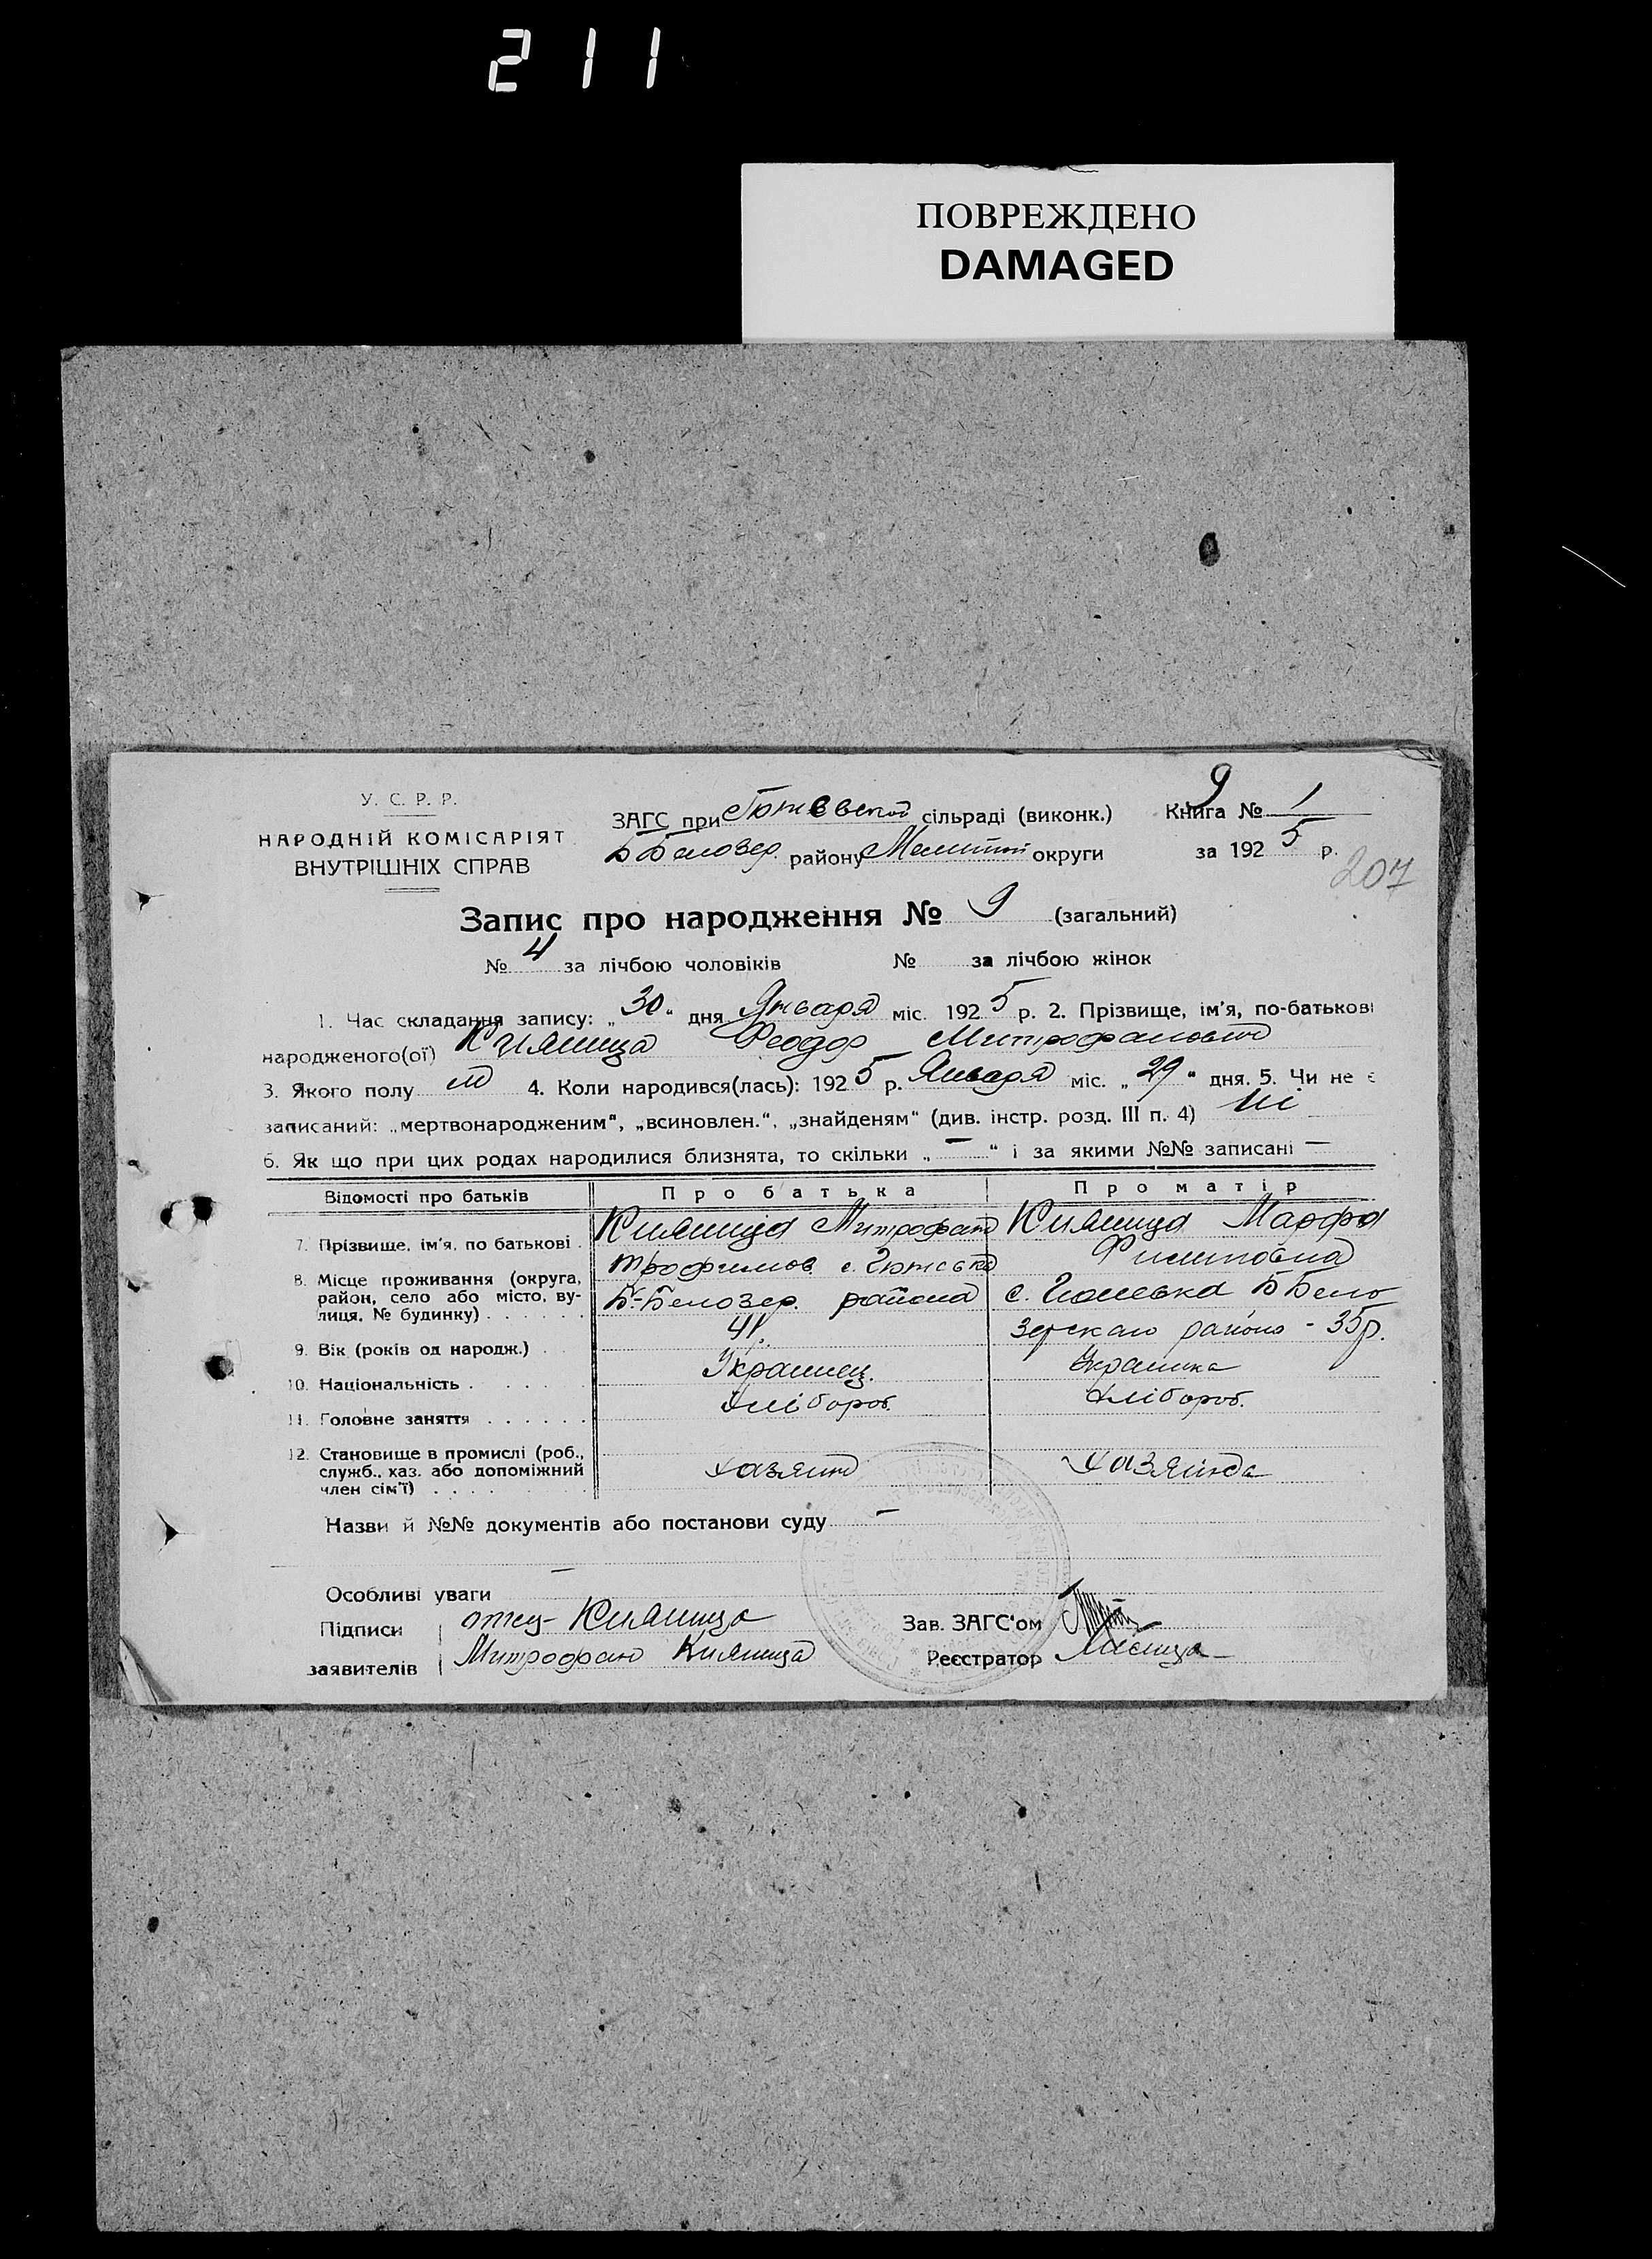 211
ПОВРЕЖДЕНО
DAMAGED
У. С. Р. Р.
НАРОДНІЙ КОМІСАРІЯТ
ВНУТРІШНІХ СПРАВ
ЗАГС при сільраді (виконк.)
Б Белозер. району Мелитоп округи
9
Книга № 1
за 1925 р.
207
Запис про народження № 9 (загальний)
№ 4 за лічбою чоловіків № за лічбою жінок
1. Час складання запису: „30“ дня Января міс. 1925 р. 2. Прізвище, ім'я, по-батькові
народженого(ої) Кияница Феодор Митрофанович
3. Якого полу м 4. Коли народився(лась): 1925 р. Января міс. „29“ дня. 5. Чи не є
записаний: „мертвонародженим“, „всиновлен.“, „знайденям“ (див. інстр. розд. III п. 4) ні
6. Як що при цих родах народилися близнята, то скільки „—“ і за якими №№ записані —
Відомості про батьків Про батька Про матір
7. Прізвище, ім'я, по батькові . Кияница Митрофан Кияница Марфа
Трофимов. с. Филиповна
8. Місце проживання (округа, район, село або місто, вулиця, № будинку) . . . . . . Б-Белозер. района с. Б Бело
9. Вік (років од народж.) . 41. зерскаго района - 35р.
10. Національність . . . . . Украинец. Украинка
11. Головне заняття . . . . . . хлібороб. хлібороб.
12. Становище в промислі (роб.,
служб., хаз. або допоміжний
член сім'ї) . . . . хазяин хазяйка
Назви й №№ документів або постанови суду —
Особливі уваги —
Підписи отец Кияница Зав. ЗАГС'ом
заявителів Митрофан Кияница Реєстратор